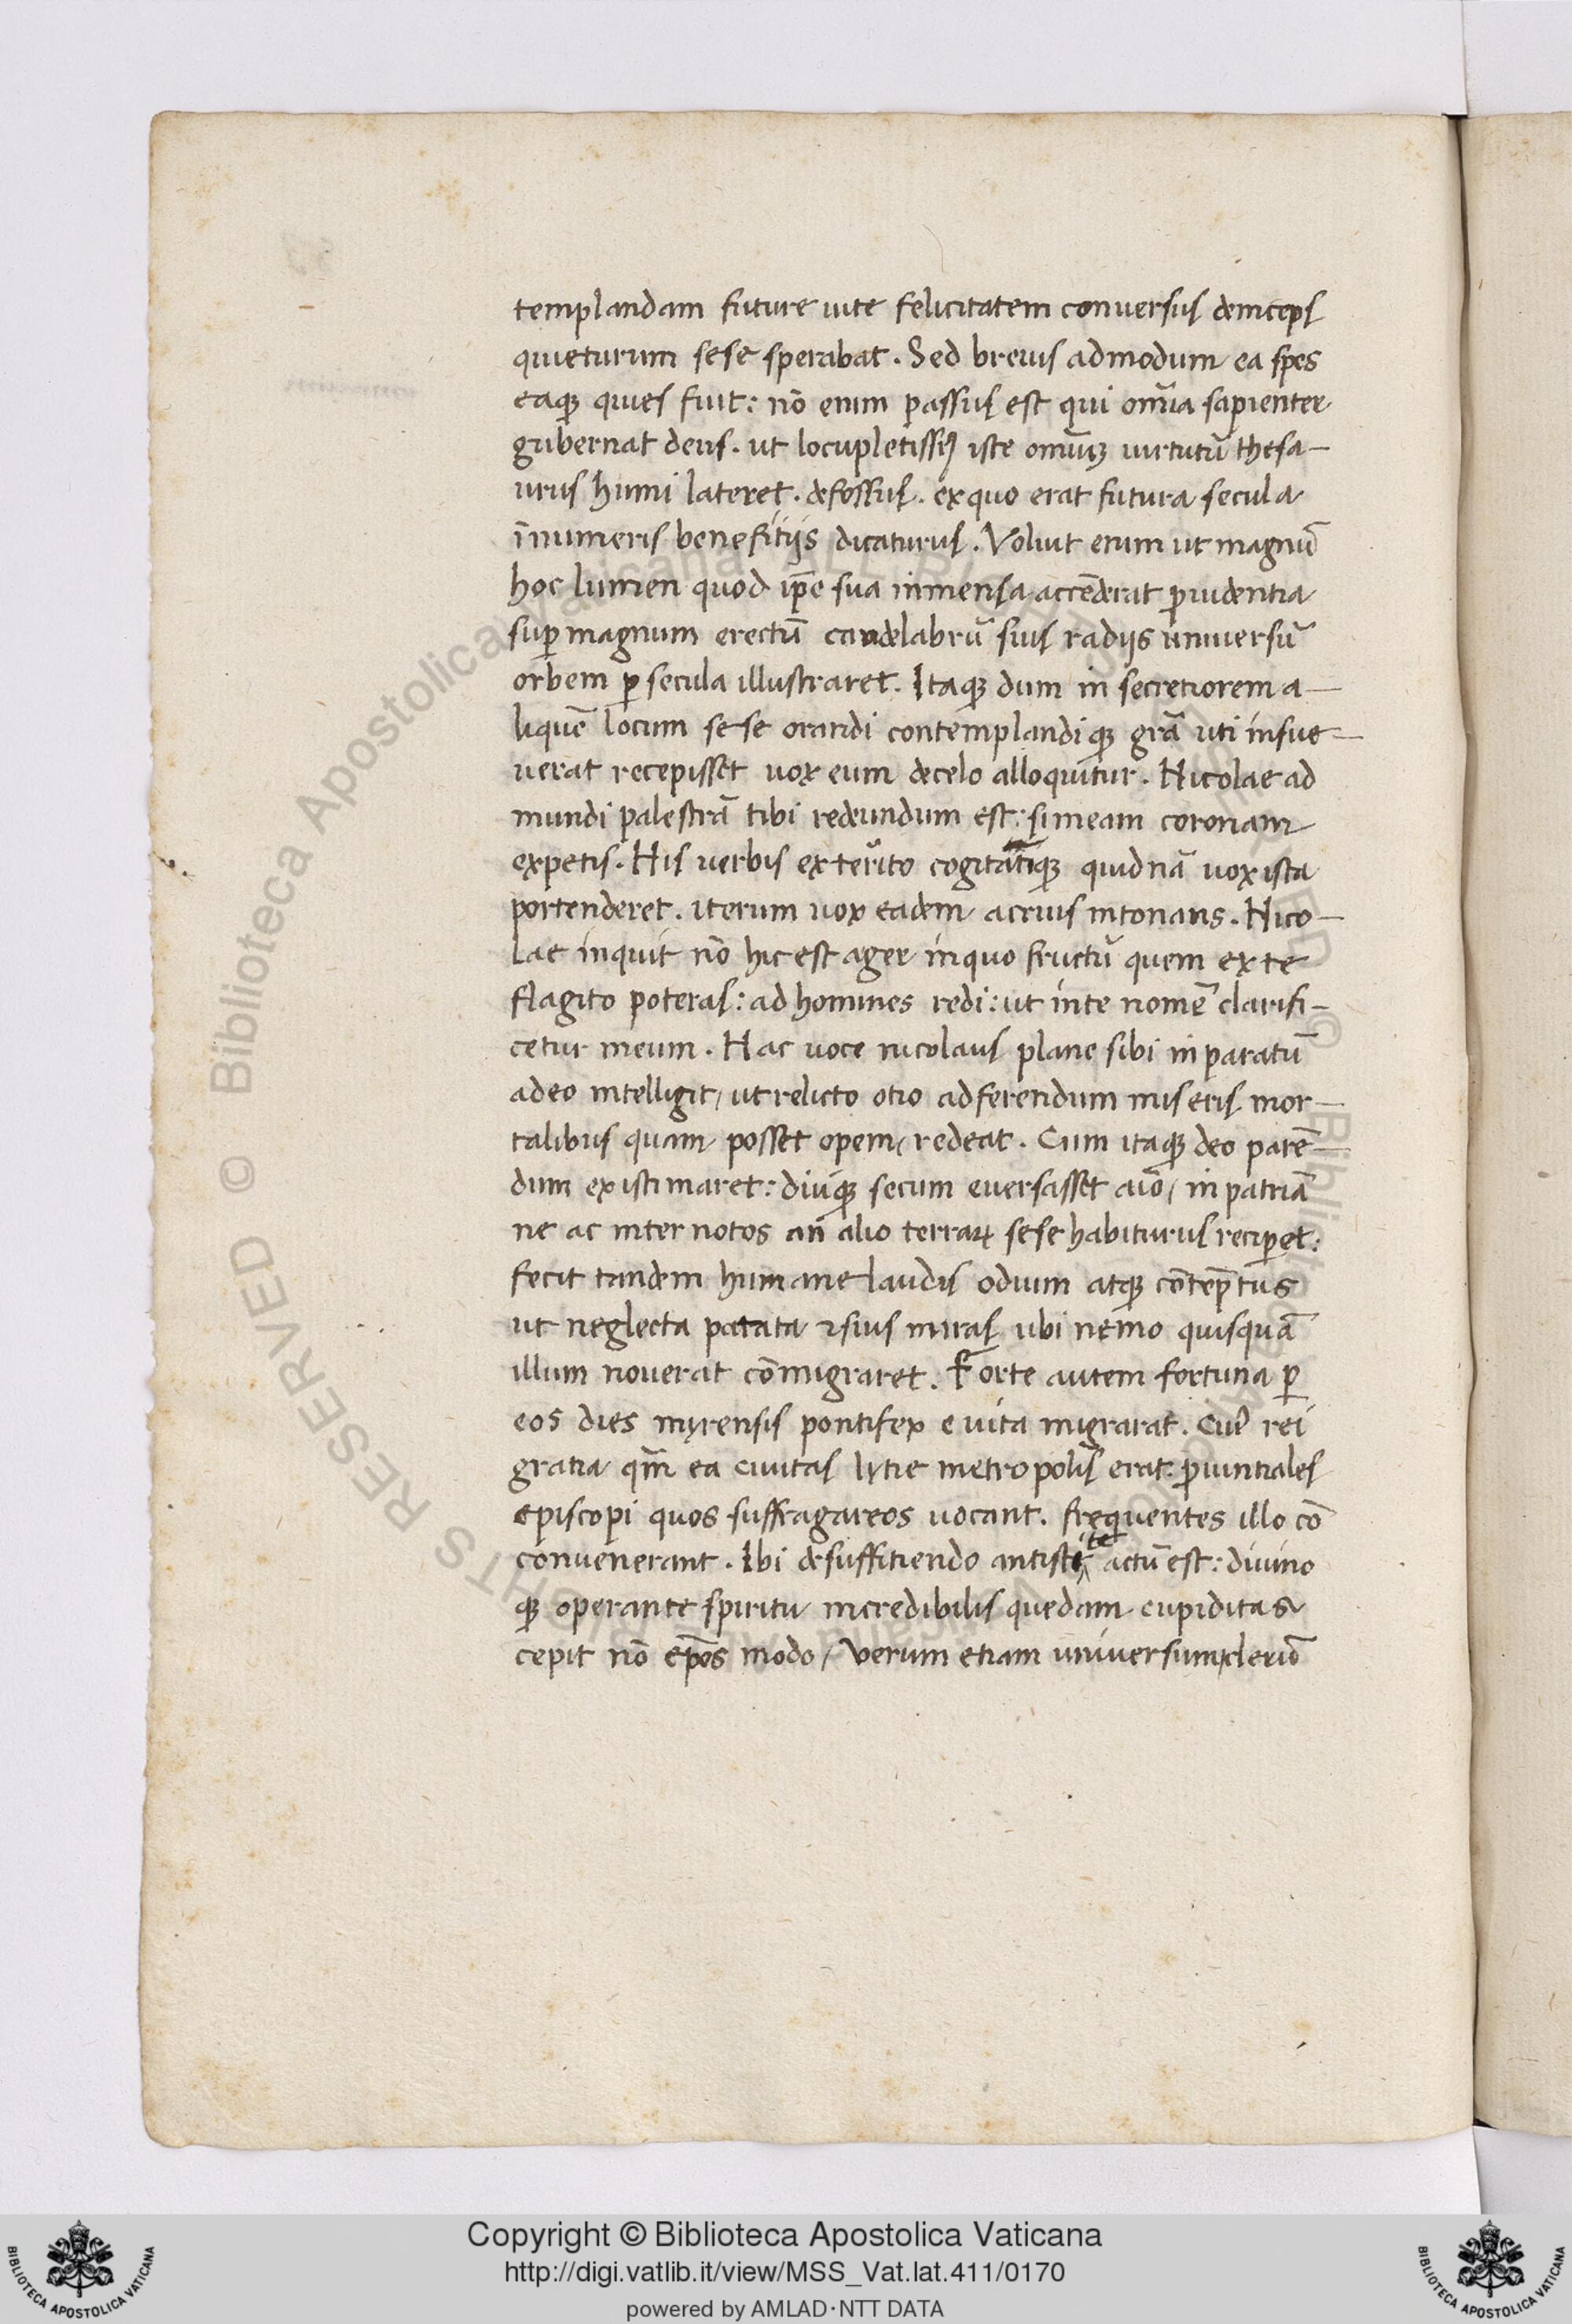 templandam future uite felicitatem conuersus deinceps
quieturum sese sperabat. Sed breuis admodum ea spes
eaqꝫ quies fuit: nō enim passus est qui om̄ia sapienter
gubernat deus. ut locupletissꝰ iste omniuꝫ uirtutū thesa-
urus humi lateret. defossus. ex quo erat futura secula
īnumeris benefitijs dicaturus. Voluit enim ut magnū
hoc lumen quod ip̄e sua inmensa accēderat prudentia
suꝑ magnum erectū candelabrū suis radijs uniuersū
orbem ꝑ secula illustraret. Itaqꝫ dum in secretiorem a-
liquē locum sese orandi contemplandiqꝫ grā uti insue-
uerat recepisset uox eum de celo alloquitur. Nicolae ad
mundi palestrā tibi redeundum est: si meam coronam
expetis. His uerbis exterrito cogitātiqꝫ quidnā uox ista
portenderet. iterum uox eadem acrius intonans. Nico-
lae inquit nō hic est ager in quo fructū quem ex te
flagito poteras: ad homines redi: ut in te nomē clarifi-
cetur meum. Hac uoce nicolaus plane sibi inparatū
a deo intelligit, ut relicto otio ad ferendum miseris mor-
talibus quam posset opem, redeat. Cum itaqꝫ deo parē-
dum existimaret: diuqꝫ secum euersasset aīo, in patriā
ne ac inter notos an alio terraꝝ sese habiturus reciꝑet:
fecit tandem humane laudis odium atqꝫ cōtēptus
ut neglecta patata ⁊ suis miras ubi nemo quisquā
illum nouerat cōmigraret. Forte autem fortuna ꝑ
eos dies myrensis pontifex e uita migrarat. Cuiꝰ rei
gratia qm̄ ea ciuitas lytie metropolis erat: prouintiales
episcopi quos suffragareos uocant. frequentes illo cō
conuenerant. Ibi de suffitiendo antistite actū est: diuino
qꝫ operante spiritu incredibilis quedam cupiditas
cepit nō ep̄os modo, verum etiam uniuersum clerū
Copyright © Biblioteca Apostolica Vaticana
http://digi.vatlib.it/view/MSS_Vat.lat.411/0170
powered by AMLAD·NTT DATA